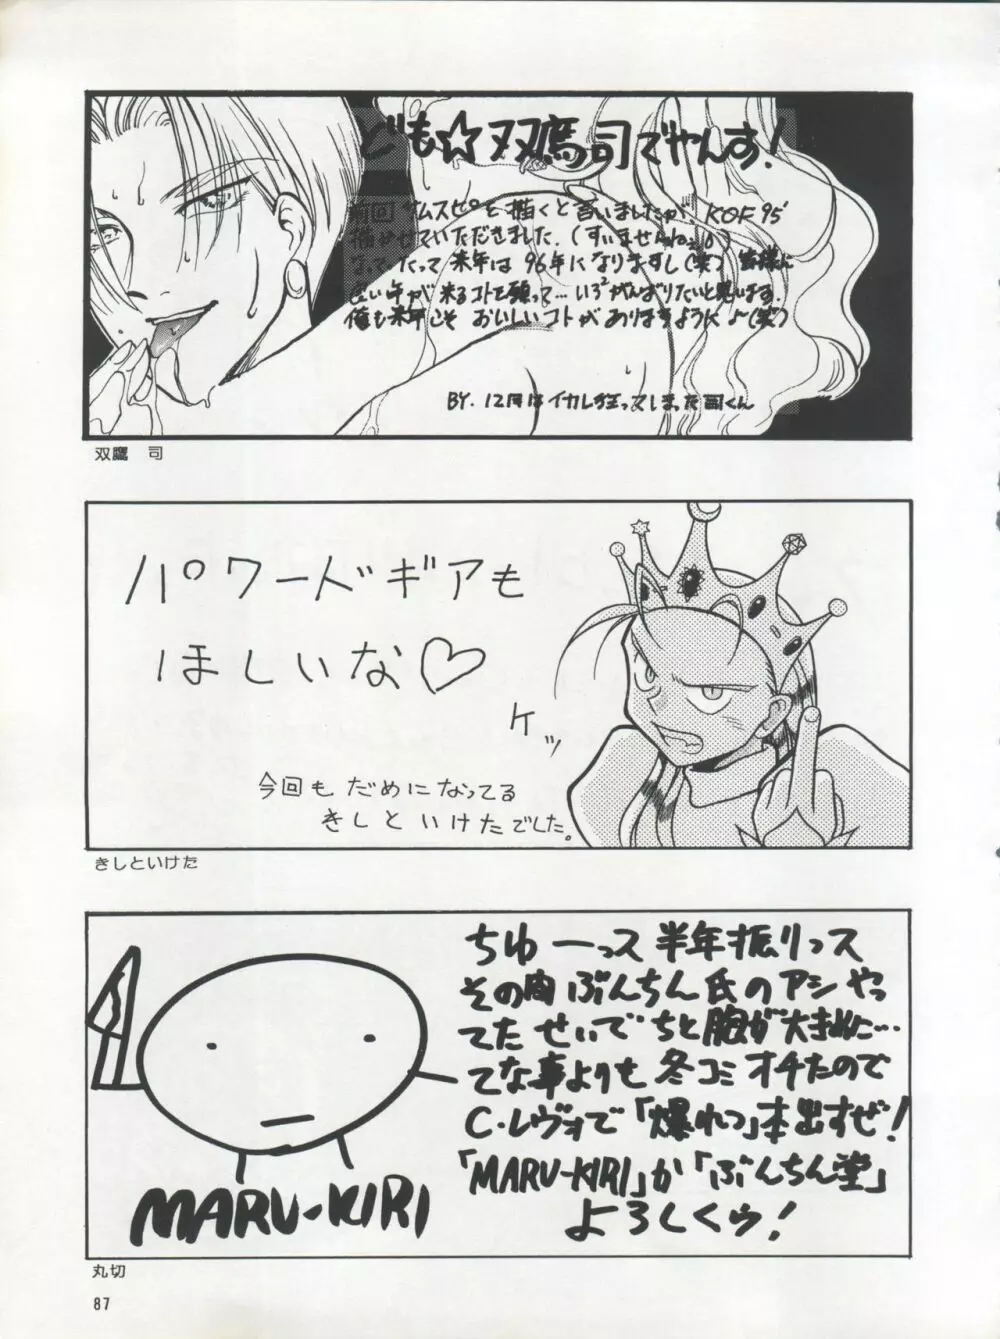 ども☆双鷹司でやんす!
前回サムスピを描くと言いましたが、KOF95'
描かせていただきました。(すいませんねェ。)
だって来年は96年になりますし(笑) 皆様に
良い年が来るコトを願って…いろ²がんばりたいと思います。
俺も来年こそおいしいコトがありますように♪〜(笑)
BY. 12月はイカレ狂ってしまった司くん
双鷹 司
パワードギアも
ほしいな♡
ケッ
今回もだめになってる
きしといけたでした。
きしといけた
ちゅーっス 半年振りっス
その間ぶんちん氏のアシやっ
てたせいでちと胸が大きめに…
てな事よりも冬コミオチたので
C・レヴォで「爆れつ」本出すぜ!
「MARU-KIRI」か「ぶんちん堂」
よろしくゥ!
MARU-KIRI
丸切
87